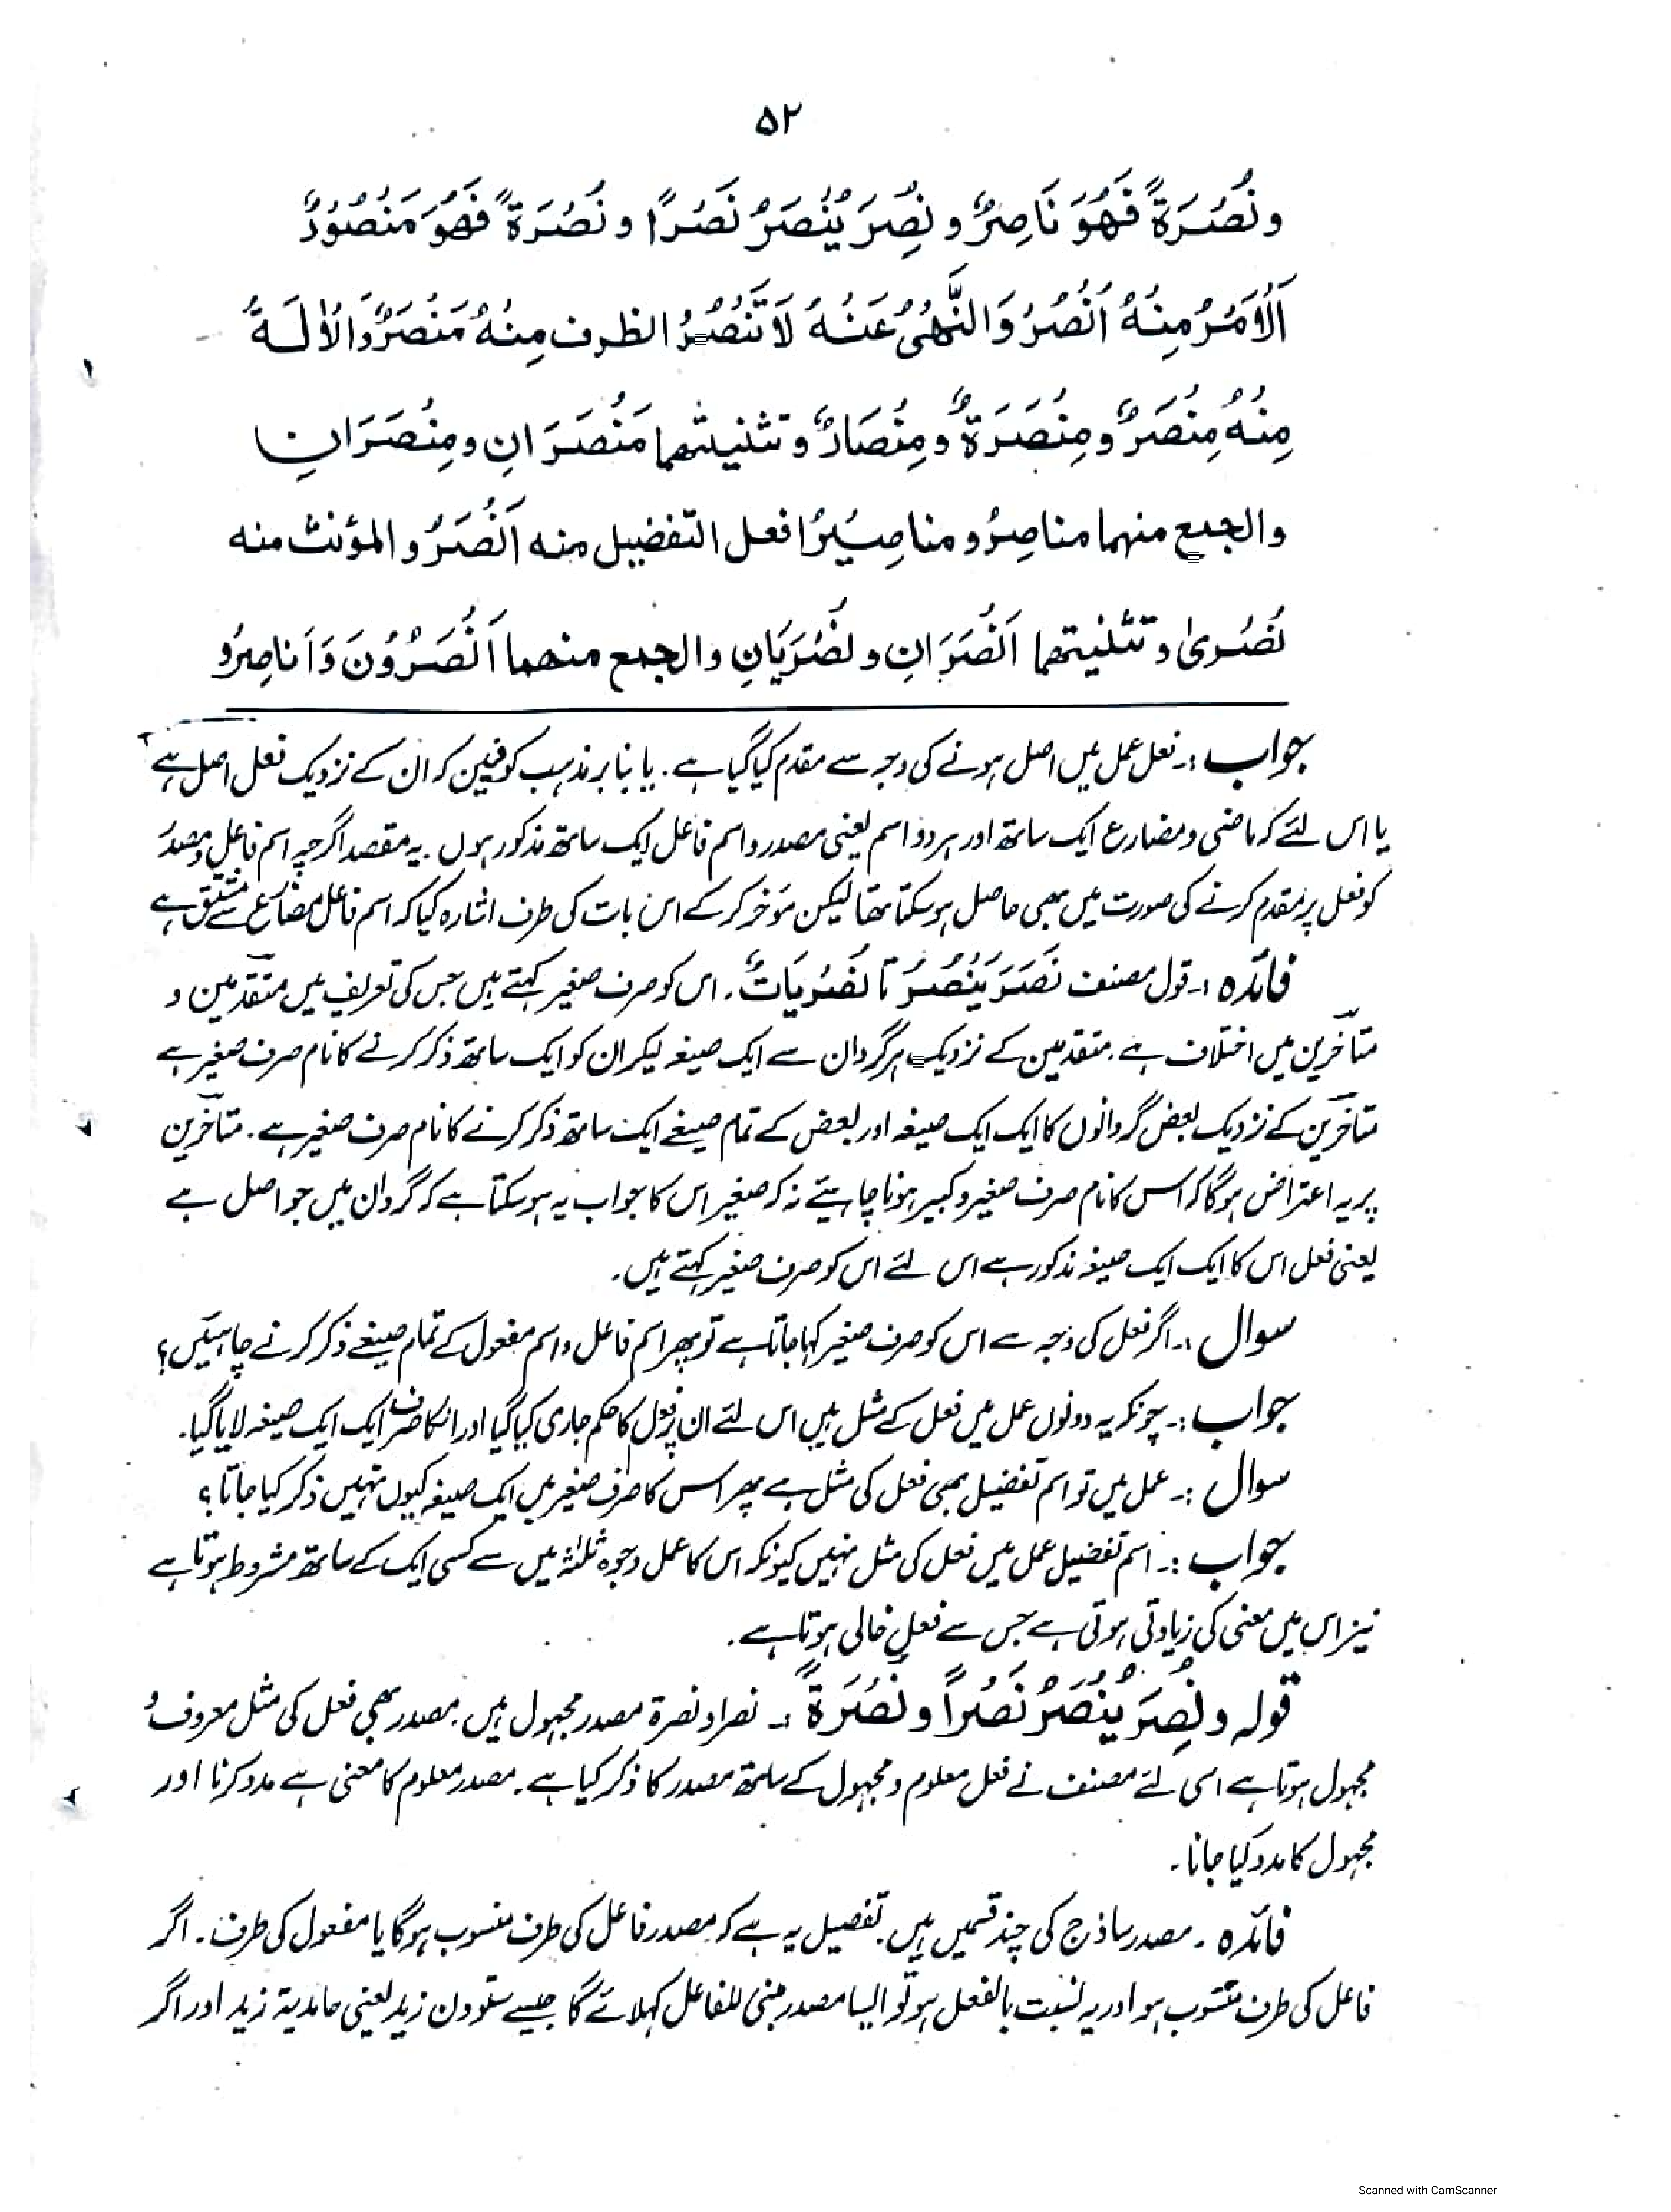 ۵۲
ونُصْرَةً فَهُوَ نَاصِرٌ و نُصِرَ يُنْصَرُ نَصْرًا و نُصْرَةً فَهُوَ مَنْصُوْرٌ
اَلْاَمْرُ مِنْهُ اُنْصُرْ وَالنَّهْىُ عَنْهُ لَا تَنْصُرْ الظرف مِنْهُ مَنْصَرٌ وَالْاٰلَةُ
مِنْهُ مِنْصَرٌ ومِنْصَرَةٌ ومِنْصَارٌ و تثنيتهما مَنْصَرَانِ ومِنْصَرَانِ
والجمع منهما مناصِرُ و مناصِيْرُ افعل التفضيل منه اَنْصَرُ و المؤنث منه
نُصْرىٰ و تثنيتهما اَنْصَرَانِ و نُصْرَيَانِ والجمع منهما اَنْصَرُوْنَ وَاَناصِرُ و
جواب :۔ فعل عمل میں اصل ہونے کی وجہ سے مقدم کیا گیا ہے۔ یا بنا بر مذہب کوفیین کہ ان کے نزدیک فعل اصل ہے
یا اس لئے کہ ماضی و مضارع ایک ساتھ اور ہر دو اسم یعنی مصدر و اسم فاعل ایک ساتھ مذکور ہوں۔ یہ مقصد اگرچہ اسم فاعل و مصدر
کو فعل پر مقدم کرنے کی صورت میں بھی حاصل ہو سکتا تھا لیکن مؤخر کر کے اس بات کی طرف اشارہ کیا کہ اسم فاعل مضارع سے مشتق ہے
فائدہ :۔ قول مصنف نَصَرَ يَنْصُرُ تا نُصْرَيَاتٌ۔ اس کو صرف صغیر کہتے ہیں جس کی تعریف میں متقدمین و
متأخرین میں اختلاف ہے۔ متقدمین کے نزدیک ہر گردان سے ایک صیغہ لیکر ان کو ایک ساتھ ذکر کرنے کا نام صرف صغیر ہے
متأخرین کے نزدیک بعض گردانوں کا ایک ایک صیغہ اور بعض کے تمام صیغے ایک ساتھ ذکر کرنے کا نام صرف صغیر ہے۔ متأخرین
پر یہ اعتراض ہوگا کہ اس کا نام صرف صغیر و کبیر ہونا چاہیئے نہ کہ صغیر اس کا جواب یہ ہو سکتا ہے کہ گردان میں جو اصل ہے
یعنی فعل اس کا ایک ایک صیغہ مذکور ہے اس لئے اس کو صرف صغیر کہتے ہیں۔
سوال :۔ اگر فعل کی وجہ سے اس کو صرف صغیر کہا جاتا ہے تو پھر اسم فاعل و اسم مفعول کے تمام صیغے ذکر کرنے چاہئیں؟
جواب :۔ چونکہ یہ دونوں عمل میں فعل کے مثل ہیں اس لئے ان پر فعل کا حکم جاری کیا گیا اور انکا صرف ایک ایک صیغہ لایا گیا۔
سوال :۔ عمل میں تو اسم تفضیل بھی فعل کی مثل ہے پھر اس کا صرف صغیر میں ایک صیغہ کیوں نہیں ذکر کیا جاتا؟
جواب :۔ اسم تفضیل عمل میں فعل کی مثل نہیں کیونکہ اس کا عمل وجوہ ثلٰثہ میں سے کسی ایک کے ساتھ مشروط ہوتا ہے
نیز اس میں معنی کی زیادتی ہوتی ہے جس سے فعل خالی ہوتا ہے۔
قوله و نُصِرَ يُنْصَرُ نَصْراً و نُصْرَةً :۔ نصرا و نصرة مصدر مجہول ہیں۔ مصدر بھی فعل کی مثل معروف و
مجہول ہوتا ہے اسی لئے مصنف نے فعل معلوم و مجہول کے ساتھ مصدر کا ذکر کیا ہے۔ مصدر معلوم کا معنی ہے مدد کرنا اور
مجہول کا مدد کیا جانا۔
فائدہ ۔ مصدر ساذج کی چند قسمیں ہیں۔ تفصیل یہ ہے کہ مصدر فاعل کی طرف منسوب ہوگا یا مفعول کی طرف۔ اگر
فاعل کی طرف منسوب ہو اور یہ نسبت بالفعل ہو تو ایسا مصدر مبنی للفاعل کہلائے گا جیسے ستودن زید یعنی حامدیة زید اور اگر
Scanned with CamScanner